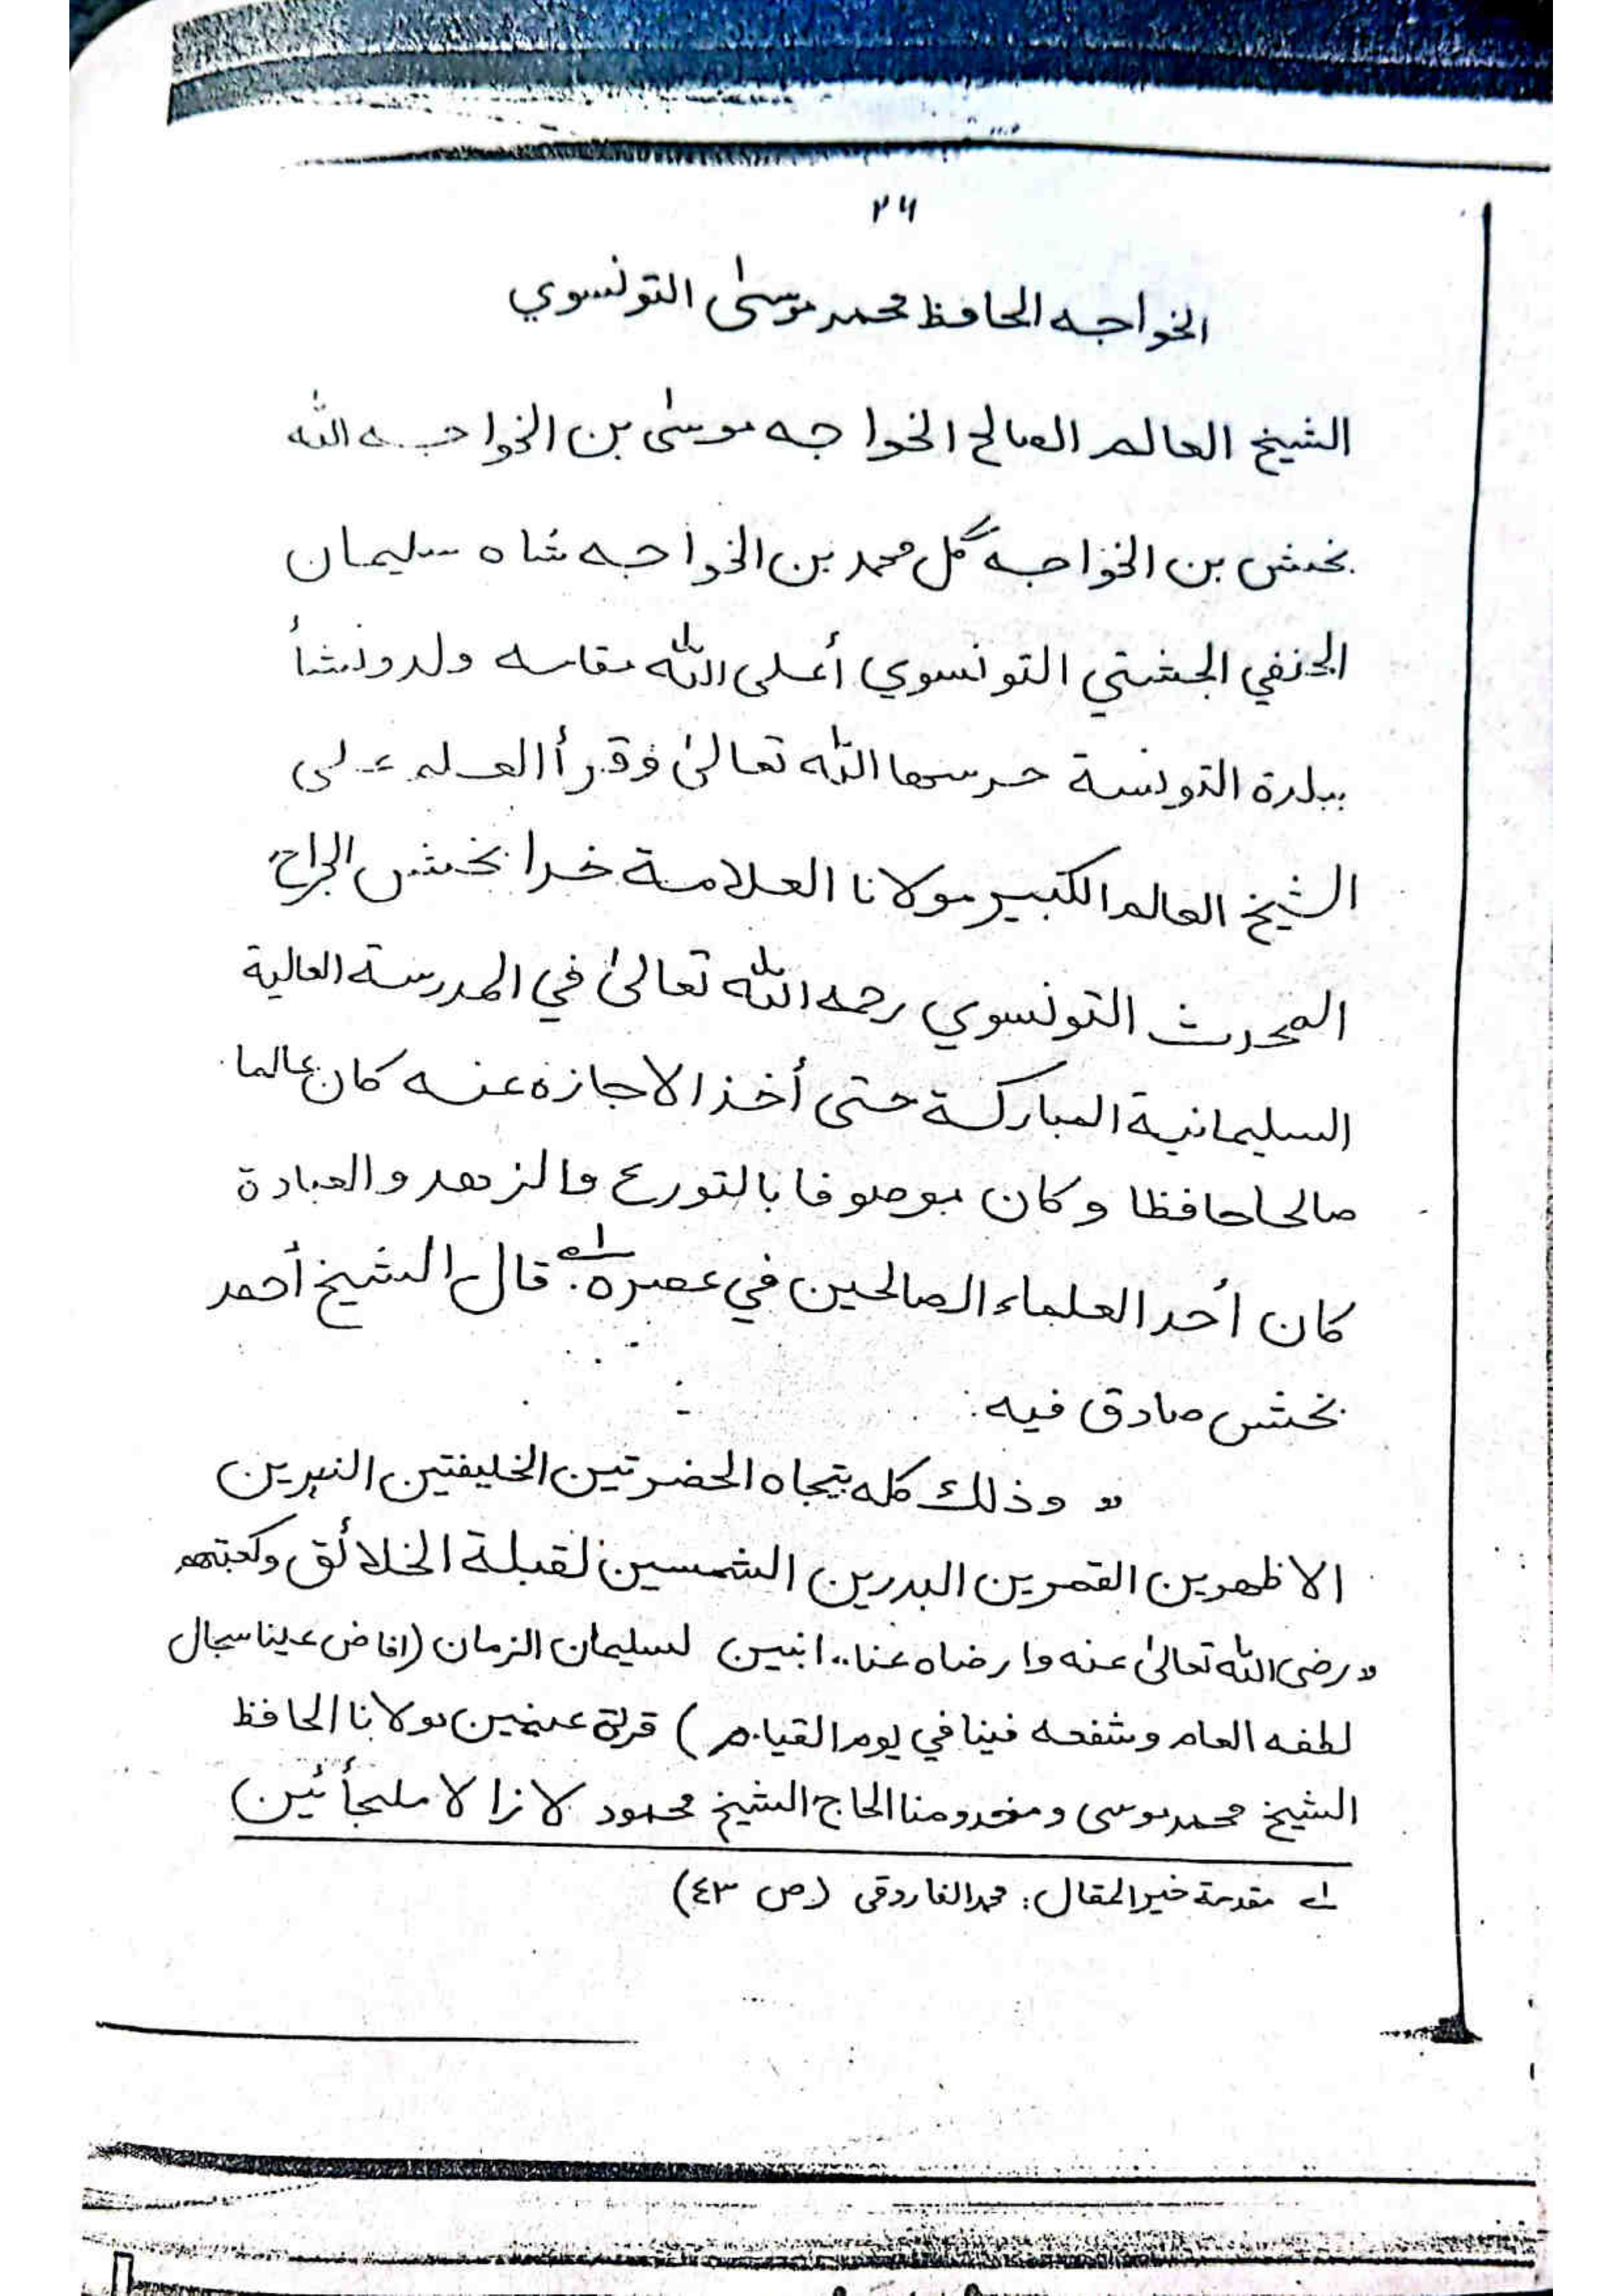 ۲۶
الخواجه الحافظ محمد موسىٰ التونسوي
الشيخ العالم الصالح الخواجه موسىٰ بن الخواجه الله
بخش بن الخواجه گل محمد بن الخواجه شاه سليمان
الحنفي الجشتي التونسوي أعلى الله مقامه ولد ونشأ
ببلدة التونسة حرسها الله تعالىٰ وقرأ العلم على
الشيخ العالم الكبير مولانا العلامة خدا بخش الجراح
المحدث التونسوي رحمه الله تعالىٰ في المدرسة العالية
السليمانية المباركة حتى أخذ الاجازة عنه كان عالما
صالحا حافظا وكان موصوفا بالتورع والزهد والعبادة
كان أحد العلماء الصالحين في عصره. اه قال الشيخ أحمد
بخش صادق فيه:
" وذلك كله بتجاه الحضرتين الخليفتين النيرين
الاظهرين القمرين البدرين الشمسين لقبلة الخلائق وكعبتهم
"رضى الله تعالىٰ عنه وارضاه عنا.. ابنين لسليمان الزمان (افاض علينا سجال
لطفه العام وشفعه فينا في يوم القيام) قرة عينين مولانا الحافظ
الشيخ محمد موسى ومخدومنا الحاج الشيخ محمود لا زالا ملجأئين
۱ے مقدمة خير المقال: محمد الفاروقى (ص ٤٣)